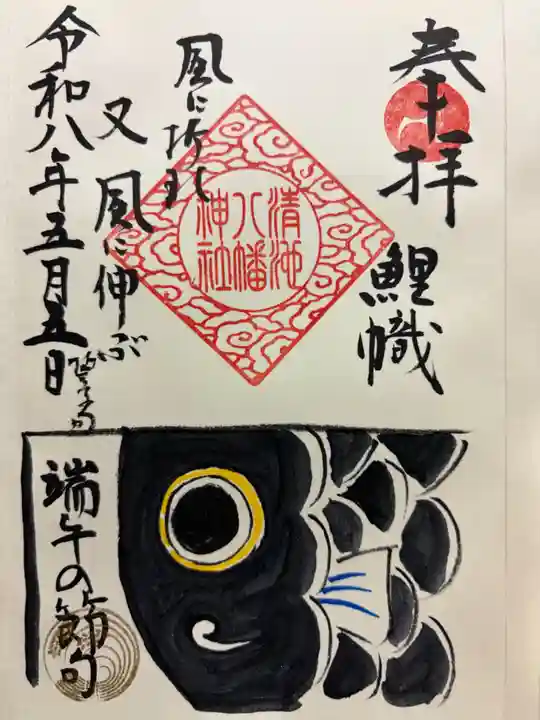 奉拝
鯉幟
風に折れ
又 風に伸ぶ
清池
八幡
神社
令和八年五月五日
端午の節句